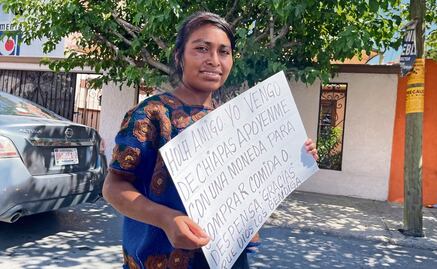 HOLA AMIGO VENGO
DE CHIAPAS APOYENME
CON UNA MONEDA PARA
COMPRAR COMIDA O
DESPENSA GRACIAS
QUE DIOS LOS